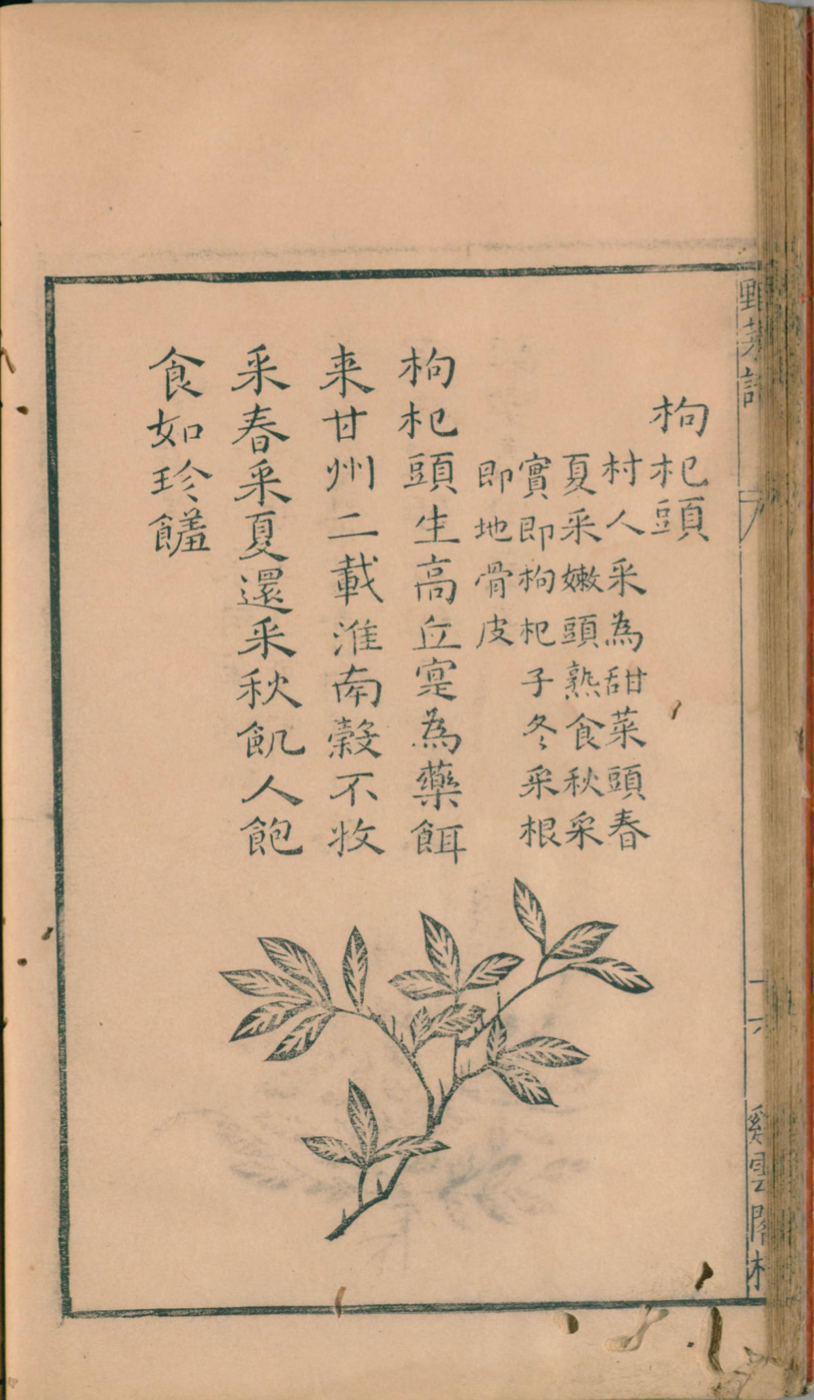 枸杞頭
村人采為甜菜頭春
夏采嫩頭熟食秋采
實即枸杞子冬采根
即地骨皮
枸杞頭生高丘寔為藥餌
来甘州二載淮南穀不收
采春采夏還采秋飢人飽
食如珍饈